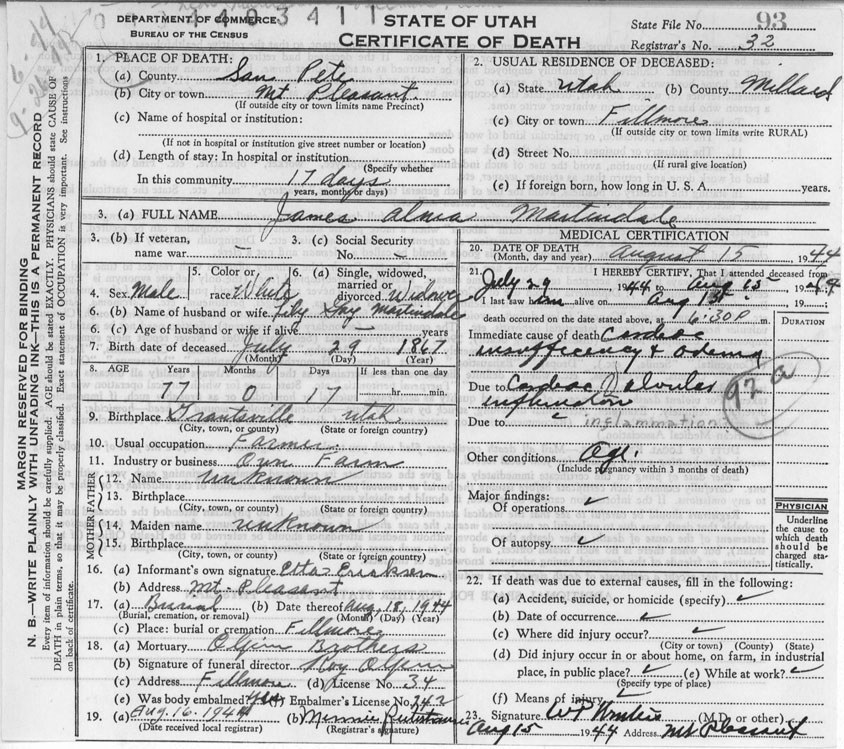 DEPARTMENT OF COMMERCE
BUREAU OF THE CENSUS
STATE OF UTAH
CERTIFICATE OF DEATH
State File No. 93
Registrar's No. 32
MARGIN RESERVED FOR BINDING
N. B.—WRITE PLAINLY WITH UNFADING INK—THIS IS A PERMANENT RECORD
Every item of information should be carefully supplied. AGE should be stated EXACTLY. PHYSICIANS should state CAUSE OF
DEATH in plain terms, so that it may be properly classified. Exact statement of OCCUPATION is very important. See instructions
on back of certificate.
1. PLACE OF DEATH:
(a) County San Pete
(b) City or town Mt Pleasant
(If outside city or town limits name Precinct)
(c) Name of hospital or institution:
(If not in hospital or institution give street number or location)
(d) Length of stay: In hospital or institution
(Specify whether
In this community 17 days
years, months or days)
2. USUAL RESIDENCE OF DECEASED:
(a) State Utah (b) County Millard
(c) City or town Fillmore
(If outside city or town limits write RURAL)
(d) Street No.
(If rural give location)
(e) If foreign born, how long in U. S. A. years.
3. (a) FULL NAME James Alma Martindale
3. (b) If veteran, name war — 3. (c) Social Security No. —
4. Sex Male 5. Color or race White 6. (a) Single, widowed, married or divorced Widower
6. (b) Name of husband or wife Martindale
6. (c) Age of husband or wife if alive — years
7. Birth date of deceased July 29 1867
(Month) (Day) (Year)
8. AGE Years Months Days If less than one day
77 0 17 hr. min.
9. Birthplace Grantsville Utah
(City, town, or county) (State or foreign country)
10. Usual occupation Farmer
11. Industry or business Own Farm
FATHER
12. Name unknown
13. Birthplace
(City, town, or county) (State or foreign country)
MOTHER
14. Maiden name unknown
15. Birthplace
(City, town, or county) (State or foreign country)
16. (a) Informant's own signature Etta Ericksen
(b) Address Mt Pleasant
17. (a) Burial (b) Date thereof Aug. 18, 1944
(Burial, cremation, or removal) (Month) (Day) (Year)
(c) Place: burial or cremation Fillmore
18. (a) Mortuary Olpin Brothers
(b) Signature of funeral director Roy Olpin
(c) Address Fillmore (d) License No. 34
(e) Was body embalmed? Yes Embalmer's License No. 242
19. (a) Aug. 16. 1944 (b) Minnie
(Date received local registrar) (Registrar's signature)
MEDICAL CERTIFICATION
20. DATE OF DEATH August 15 1944
(Month, day and year)
21. I HEREBY CERTIFY, That I attended deceased from
July 29 1944 to Aug 15 1944
I last saw him alive on Aug 15th 19
death occurred on the date stated above, at 6:30 P m.
DURATION
Immediate cause of death Cardiac
insufficency & odema
Due to Cardiac Valvular
92a
Due to inflammation
Other conditions Age
(Include pregnancy within 3 months of death)
Major findings:
Of operations ✓
Of autopsy ✓
PHYSICIAN
Underline
the cause to
which death
should be
charged sta-
tistically.
22. If death was due to external causes, fill in the following:
(a) Accident, suicide, or homicide (specify) ✓
(b) Date of occurrence ✓
(c) Where did injury occur? ✓
(City or town) (County) (State)
(d) Did injury occur in or about home, on farm, in industrial
place, in public place? ✓ (e) While at work? ✓
(Specify type of place)
(f) Means of injury ✓
23. Signature (M.D. or other)
Aug 15 1944 Address Mt Pleasant